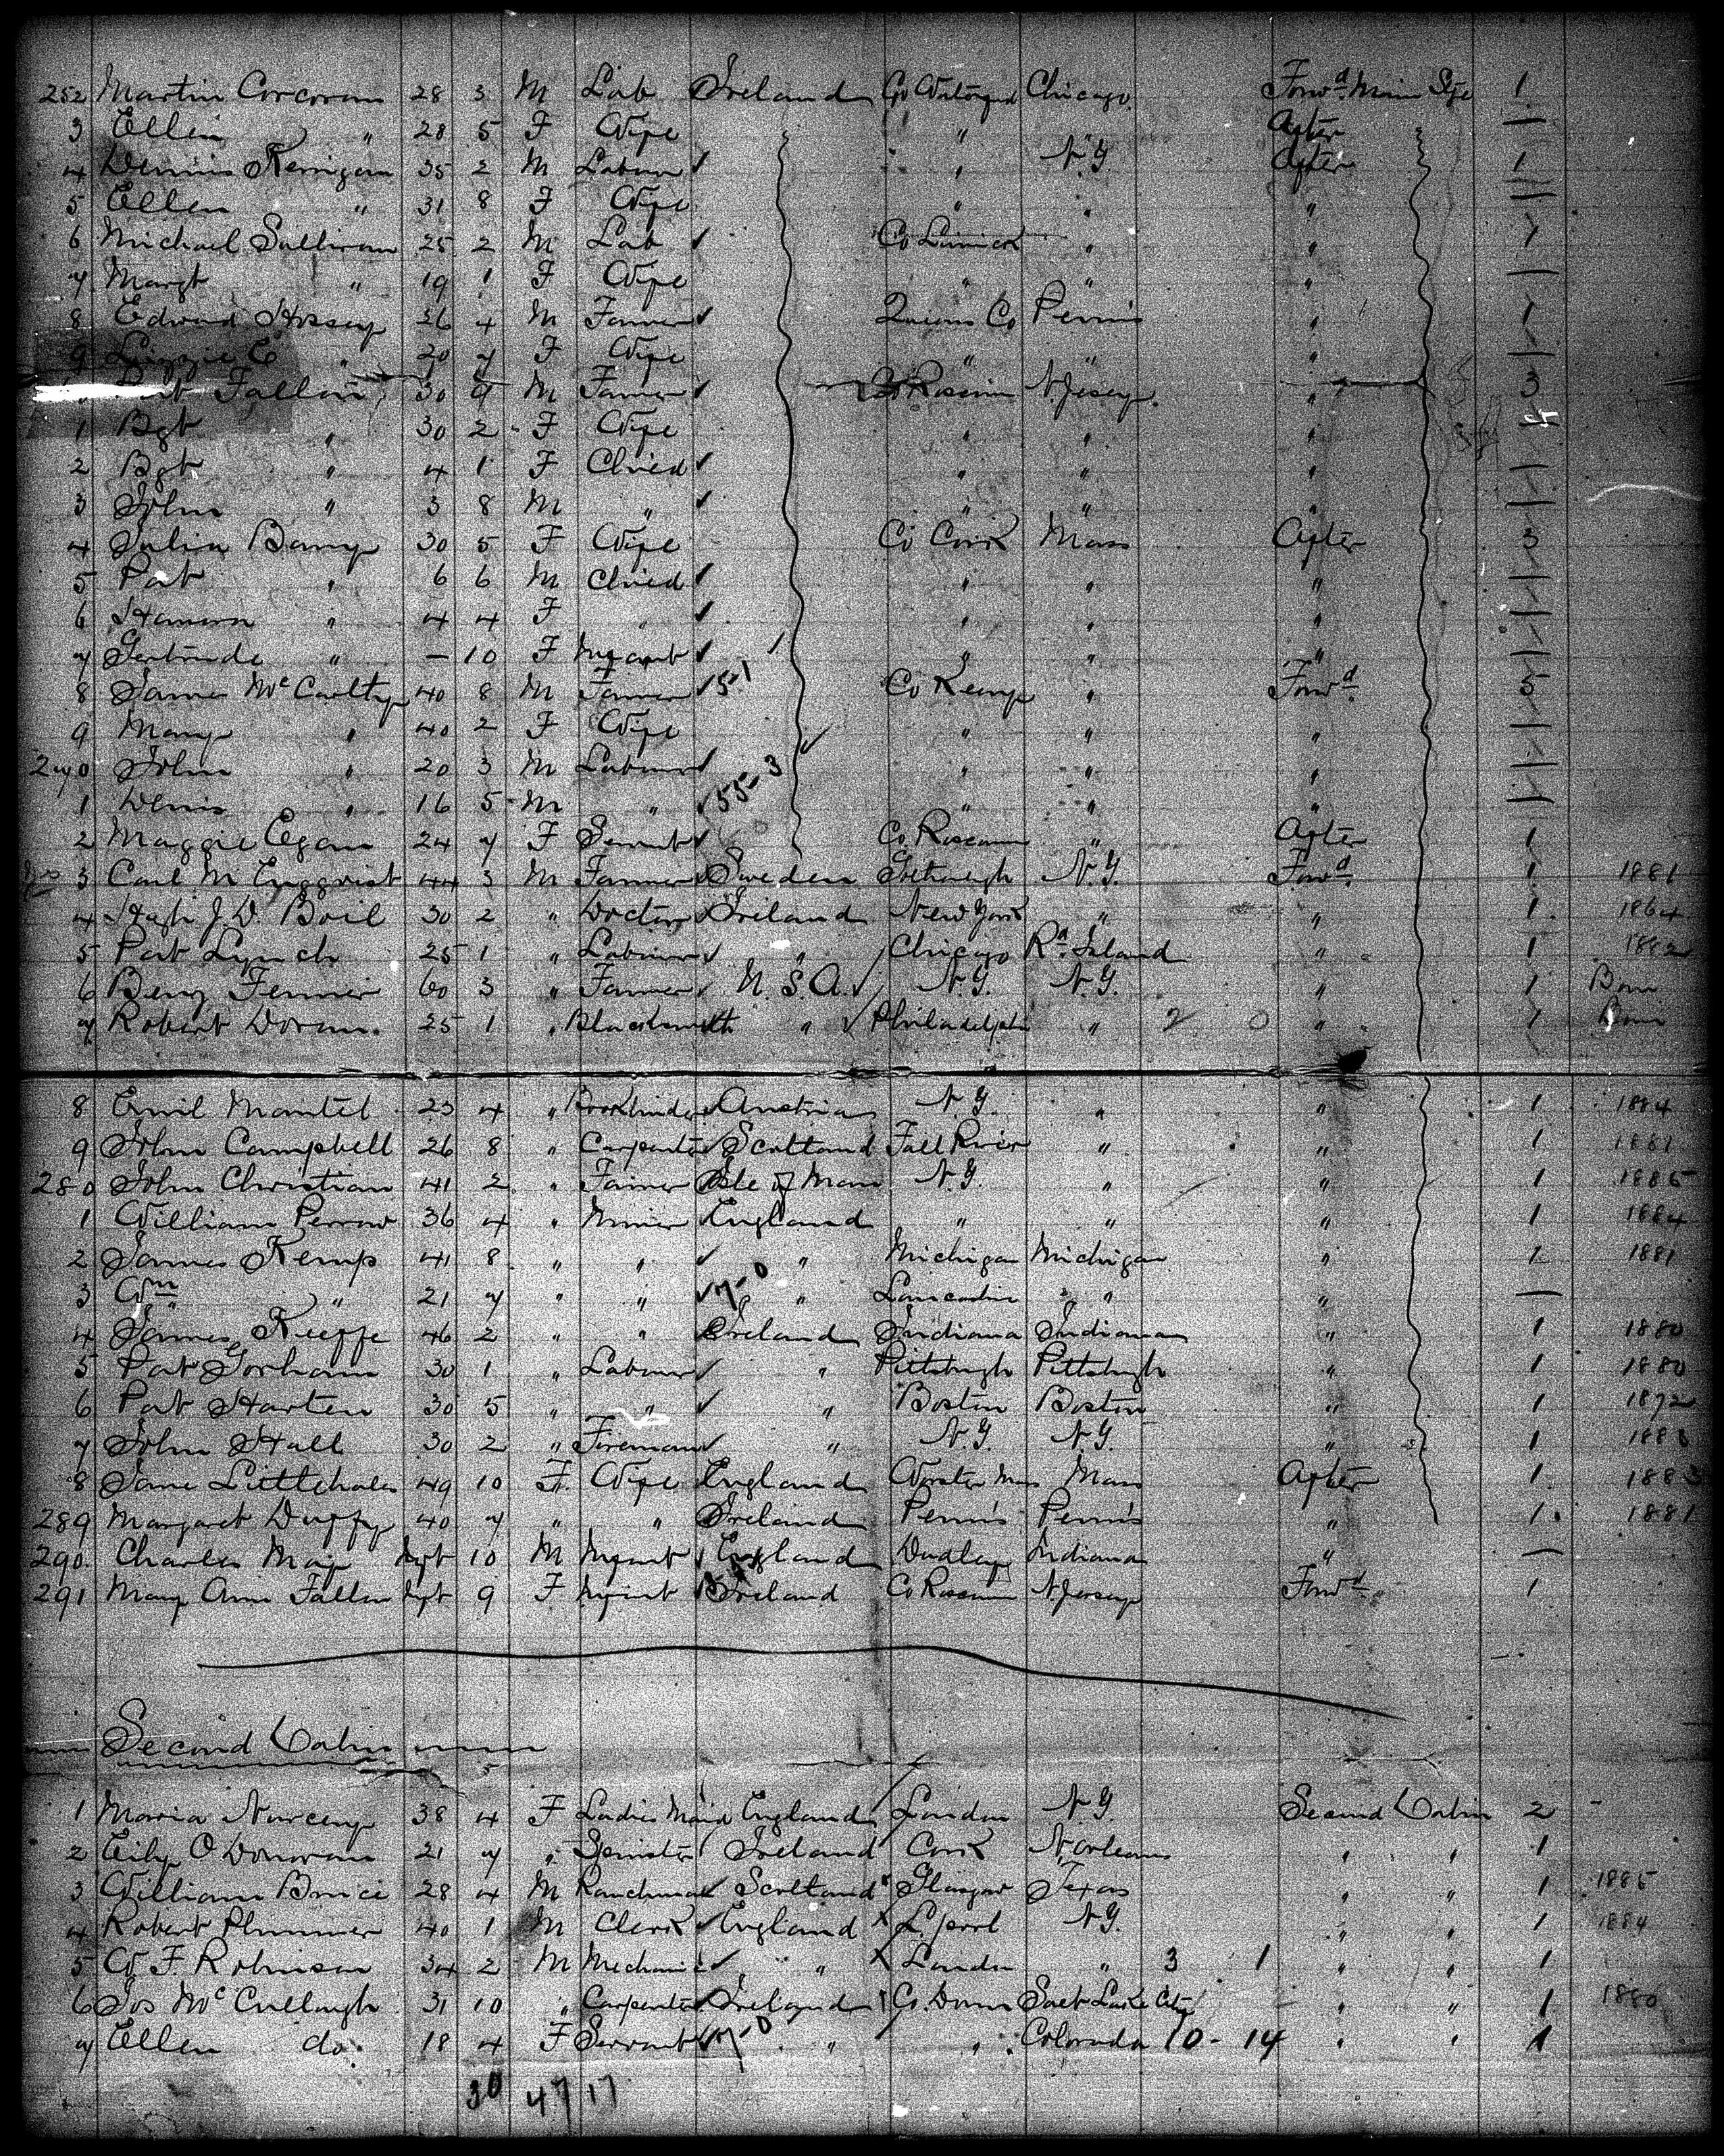 252 Martin Corcoran 28 3 M Lab Ireland Co Waterford Chicago Forwd. Main Stge 1
3 Ellen " 28 5 F Wife " After —
4 Dennis Kerrigan 35 2 M Labour " N.Y. After 1
5 Ellen " 31 8 F Wife " " " —
6 Michael Sullivan 25 2 M Lab Co Limerick " " 1
7 Margt " 19 1 F Wife " " " —
8 Edward Hossey 26 4 M Farmer Queens Co Penn's " 1
9 Lizzie E " 20 7 F Wife " " " —
Fallon 30 9 M Farmer Co Roscom N. Jersey " 3
1 Bgt " 30 2 F Wife " " " —
2 Bgt " 4 1 F Child " " " —
3 John " 3 8 M " " " " —
4 Julia Barry 30 5 F Wife Co Cork Mass After 3
5 Pat " 6 6 M Child " " " —
6 Hanora " 4 4 F " " " " —
7 Gertrude " — 10 F Infant " " " —
8 James McCarthy 40 8 M Farmer 51 Co Kerry " Forwd. 5
9 Mary " 40 2 F Wife " " " —
270 John " 20 3 M Labour " " " —
1 Denis " 16 5 M " 55-3 " " " —
2 Maggie Egan 24 7 F Servant Co Roscom " After 1
3 Carl M Engqvist 44 3 M Farmer Sweden Gothenburgh N.Y. Forwd. 1 1881
4 Hugh J. D. Boil 30 2 " Doctor Ireland New York " " 1 1864
5 Pat Lynch 25 1 " Labour " Chicago Rd. Island " 1 1882
6 Benj Fenner 60 3 " Farmer U.S.A. N.Y. N.Y. " 1 Born
7 Robert Doran 25 1 " Blacksmith " Philadelphi " 2 0 " 1 Born
8 Emil Mantel 23 4 " Bookbinder Austria N.Y. " " 1 1884
9 John Campbell 26 8 " Carpenter Scotland Fall River " " 1 1881
280 John Christian 41 2 " Farmer Isle of Man N.Y. " " 1 1885
1 William Perrow 36 4 " Miner England " " " 1 1884
2 James Kemp 41 8 " " " Michigan Michigan " 1 1881
3 Wm " 21 7 " " " Lancashire " " —
4 James Keeffe 46 2 " " Ireland Indiana Indiana " 1 1880
5 Pat Gorham 30 1 " Labour " Pittsburgh Pittsburgh " 1 1880
6 Pat Harten 30 5 " " " Boston Boston " 1 1872
7 John Hall 30 2 " Foreman " N.Y. N.Y. " 1
8 Jane Littlehales 49 10 F. Wife England Worster Mass Mass After 1 1883
289 Margaret Duffy 40 7 " " Ireland Penn's Penn's " 1 1881
290 Charles May Inft 10 M Infant England Dudley Indiana " —
291 Mary Ann Fallon Inft 9 F Infant Ireland Co Roscom N. Jersey Forwd. 1
Second Cabin
1 Maria 38 4 F Ladies Maid England London N.Y. Second Cabin 2
2 Eily O'Donovan 21 7 " Spinster Ireland Cork N. Orleans " " 1
3 William Bruce 28 4 M Ranchman Scotland Glasgow Texas " " 1 1885
4 Robert Plummer 40 1 M Clerk England L.pool N.Y. " " 1 1884
5 W. F. Robinson 34 2 M Mechanic " London " 3 1 " " 1
6 Jos McCullough 31 10 " Carpenter Ireland Co. Down Salt Lake City " " 1 1880
7 Ellen do. 18 4 F Servant " " Colorado 10 - 14 " " 1
30 47 17